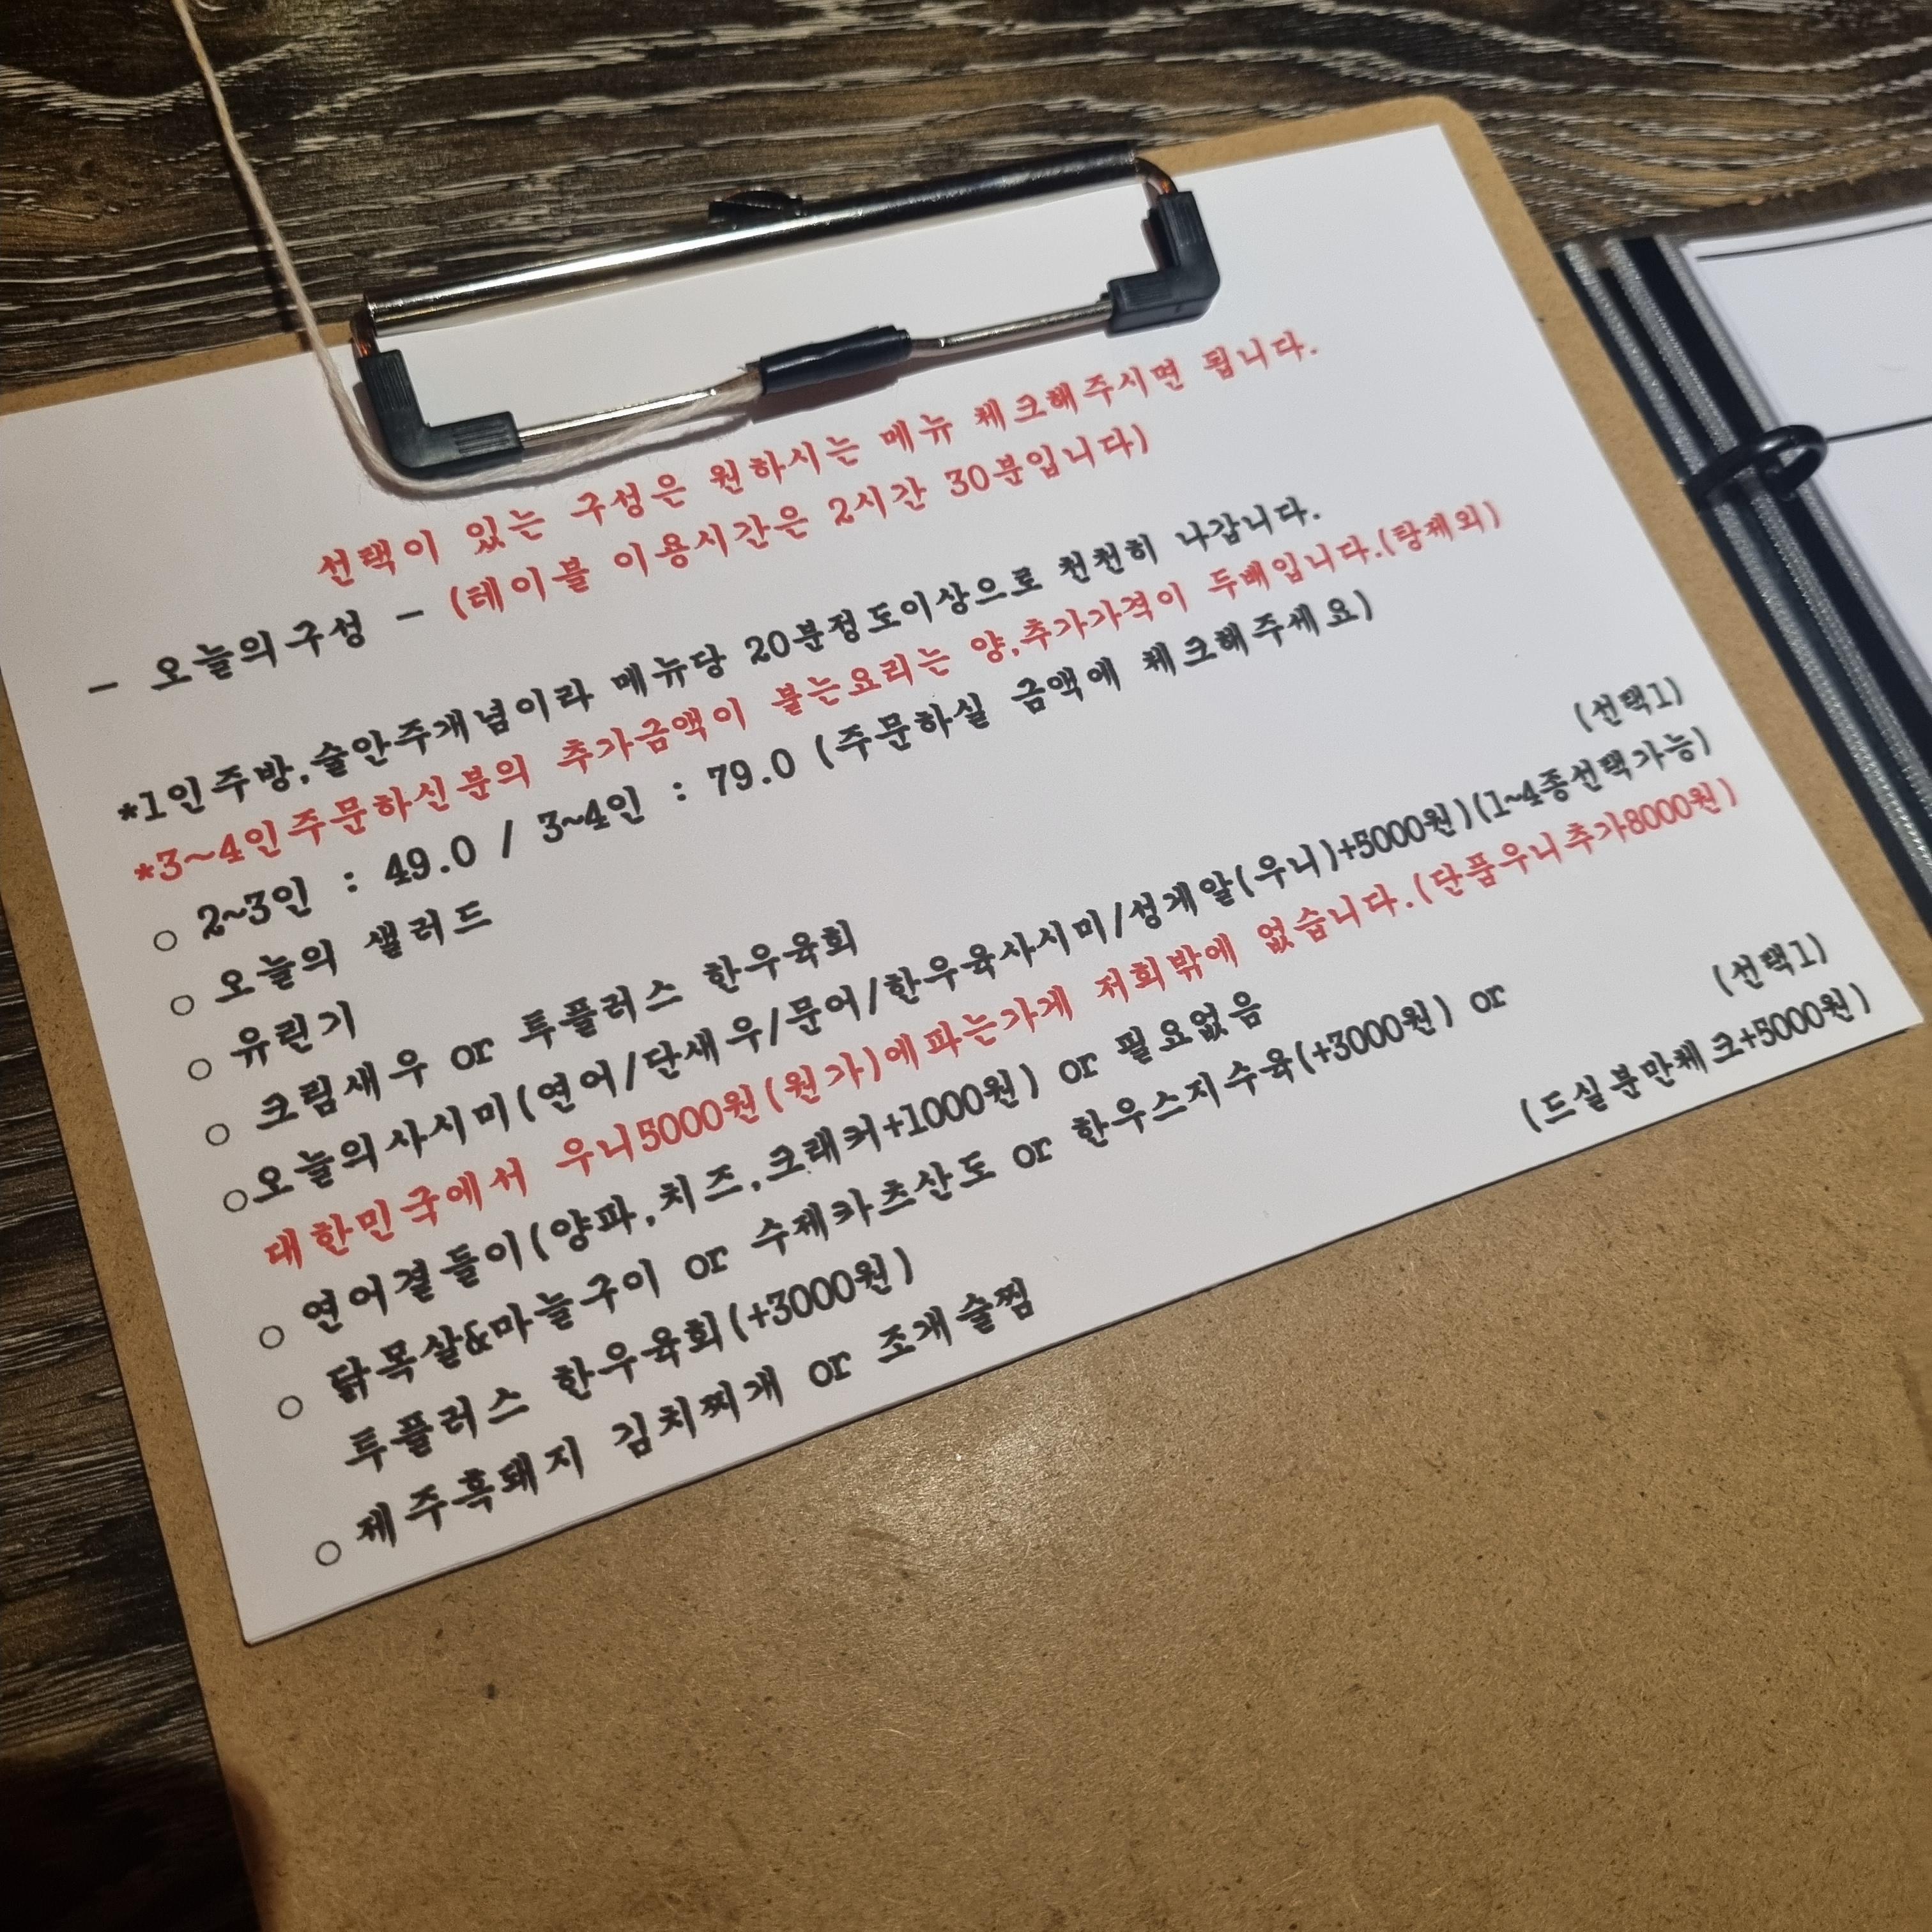 선택이 있는 구성은 원하시는 메뉴 체크해주시면 됩니다.
- 오늘의구성 - (테이블 이용시간은 2시간 30분입니다)
*1인주방,술안주개념이라 메뉴당 20분정도이상으로 천천히 나갑니다.
*3~4인주문하신분의 추가금액이 붙는요리는 양,추가가격이 두배입니다.(탕제외)
○ 2~3인 : 49.0 / 3~4인 : 79.0 (주문하실 금액에 체크해주세요)
○ 오늘의 샐러드
○ 유린기
○ 크림새우 or 투플러스 한우육회 (선택1)
○오늘의사시미(연어/단새우/문어/한우육사시미/성게알(우니)+5000원)(1~4종선택가능)
대한민국에서 우니5000원(원가)에파는가게 저희밖에 없습니다.(단품우니추가8000원)
○ 연어곁들이(양파,치즈,크래커+1000원) or 필요없음
○ 닭목살&마늘구이 or 수제카츠산도 or 한우스지수육(+3000원) or
투플러스 한우육회(+3000원) (선택1)
○ 제주흑돼지 김치찌개 or 조개술찜 (드실분만체크+5000원)